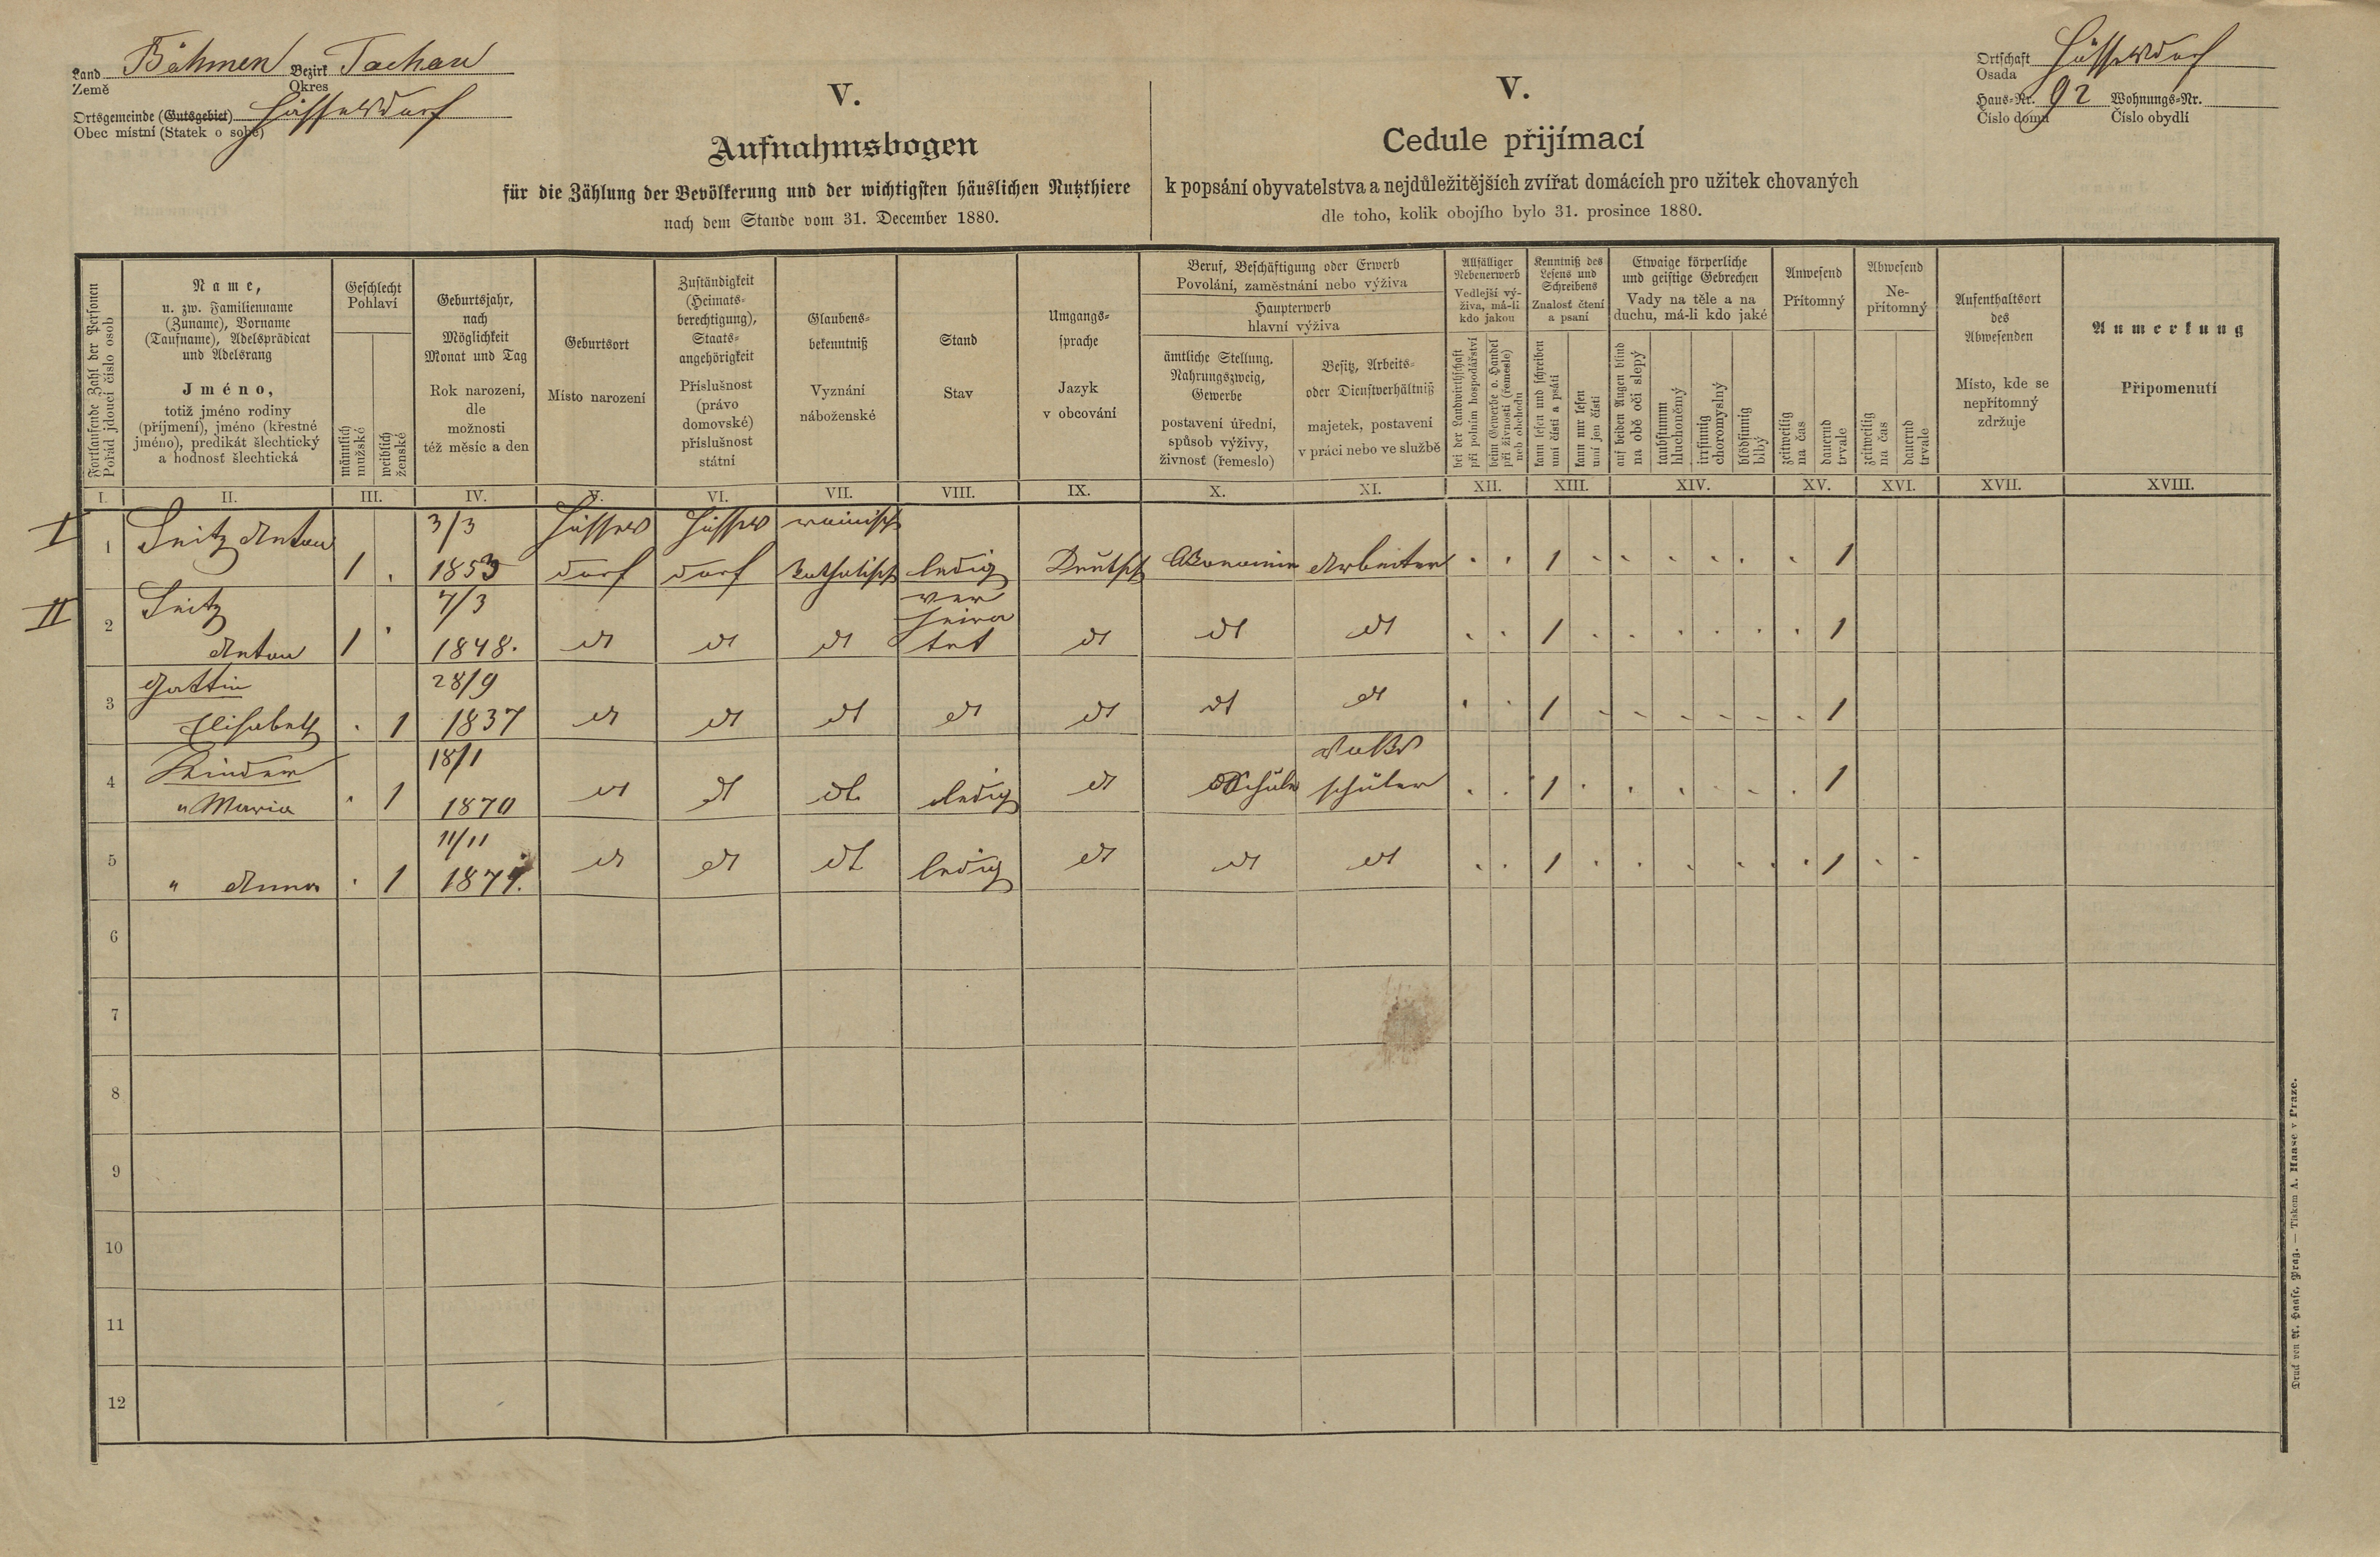 Land Böhmen Bezirk Tachau
Země Okres
Ortsgemeinde (Gutsgebiet)
Obec místní (Statek o sobě)
V.
Aufnahmsbogen
für die Zählung der Bevölkerung und der wichtigsten häuslichen Nutzthiere
nach dem Stande vom 31. December 1880.
V.
Cedule přijímací
k popsání obyvatelstva a nejdůležitějších zvířat domácích pro užitek chovaných
dle toho, kolik obojího bylo 31. prosince 1880.
Ortschaft
Osada
Haus-Nr. 92 Wohnungs-Nr.
Číslo domu Číslo obydlí
Fortlaufende Zahl der Personen
Pořád jdoucí číslo osob
Name,
u. zw. Familienname
(Zuname), Vorname
(Taufname), Adelsprädicat
und Adelsrang
Jméno,
totiž jméno rodiny
(příjmení), jméno (křestné
jméno), predikát šlechtický
a hodnosť šlechtická
Geschlecht
Pohlaví
männlich
mužské
weiblich
ženské
Geburtsjahr,
nach
Möglichkeit
Monat und Tag
Rok narození,
dle
možnosti
též měsíc a den
Geburtsort
Místo narození
Zuständigkeit
(Heimats-
berechtigung),
Staats-
angehörigkeit
Příslušnost
(právo
domovské)
příslušnost
státní
Glaubens-
bekenntniß
Vyznání
náboženské
Stand
Stav
Umgangs-
sprache
Jazyk
v obcování
Beruf, Beschäftigung oder Erwerb
Povolání, zaměstnání nebo výživa
Haupterwerb
hlavní výživa
ämtliche Stellung.
Nahrungszweig,
Gewerbe
postavení úřední,
spůsob výživy,
živnosť (řemeslo)
Besitz, Arbeits-
oder Dienstverhältniß
majetek, postavení
v práci nebo ve službě
Allfälliger
Nebenerwerb
Vedlejší vý-
živa, má-li
kdo jakou
bei der Landwirthschaft
při polním hospodářství
beim Gewerbe o. Handel
při živnosti (řemesle)
neb obchodu
Kenntniß des
Lesens und
Schreibens
Znalosť čtení
a psaní
kann lesen und schreiben
umí čísti a psáti
kann nur lesen
umí jen čísti
Etwaige körperliche
und geistige Gebrechen
Vady na těle a na
duchu, má-li kdo jaké
auf beiden Augen blind
na obě oči slepý
taubstumm
hluchoněmý
irrsinnig
choromyslný
blödsinnig
blbý
Anwesend
Přítomný
zeitweilig
na čas
dauernd
trvale
Abwesend
Ne-
přítomný
zeitweilig
na čas
dauernd
trvale
Aufenthaltsort
des
Abwesenden
Místo, kde se
nepřítomný
zdržuje
Anmerkung
Připomenutí
I. II. III. IV. V. VI. VII. VIII. IX. X. XI. XII. XIII. XIV. XV. XVI. XVII. XVIII.
I 1 Seitz Anton 1 3/3 1853 dorf dorf katholisch ledig Deutsch Arbeiter 1 1
II 2 Seitz Anton 1 7/3 1848. dt dt dt ver heira tet dt dt dt 1 1
3 Gattin Elisabeth 1 28/9 1837 dt dt dt dt dt dt dt 1 1
4 Kinder " Maria 1 18/1 1870 dt dt dt ledig dt Schüler Volks schüler 1 1
5 " Anna 1 11/11 dt dt dt ledig dt dt dt 1 1
6
7
8
9
10
11
12
Druck von A. Haase, Prag. — Tiskem A. Haase v Praze.